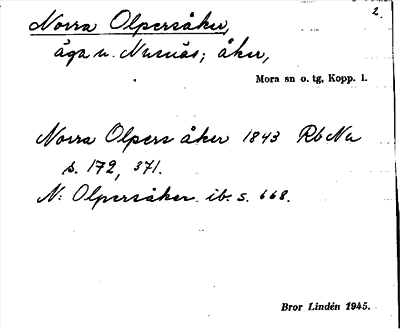 2.
Norra Olpersåker,
äga u. Nusnäs; åker,
Mora sn o. tg, Kopp. l.
Norra Olpers åker 1843 Rb Na
s. 172, 371.
N: Olpersåker ib. s. 668.
Bror Lindén 1945.